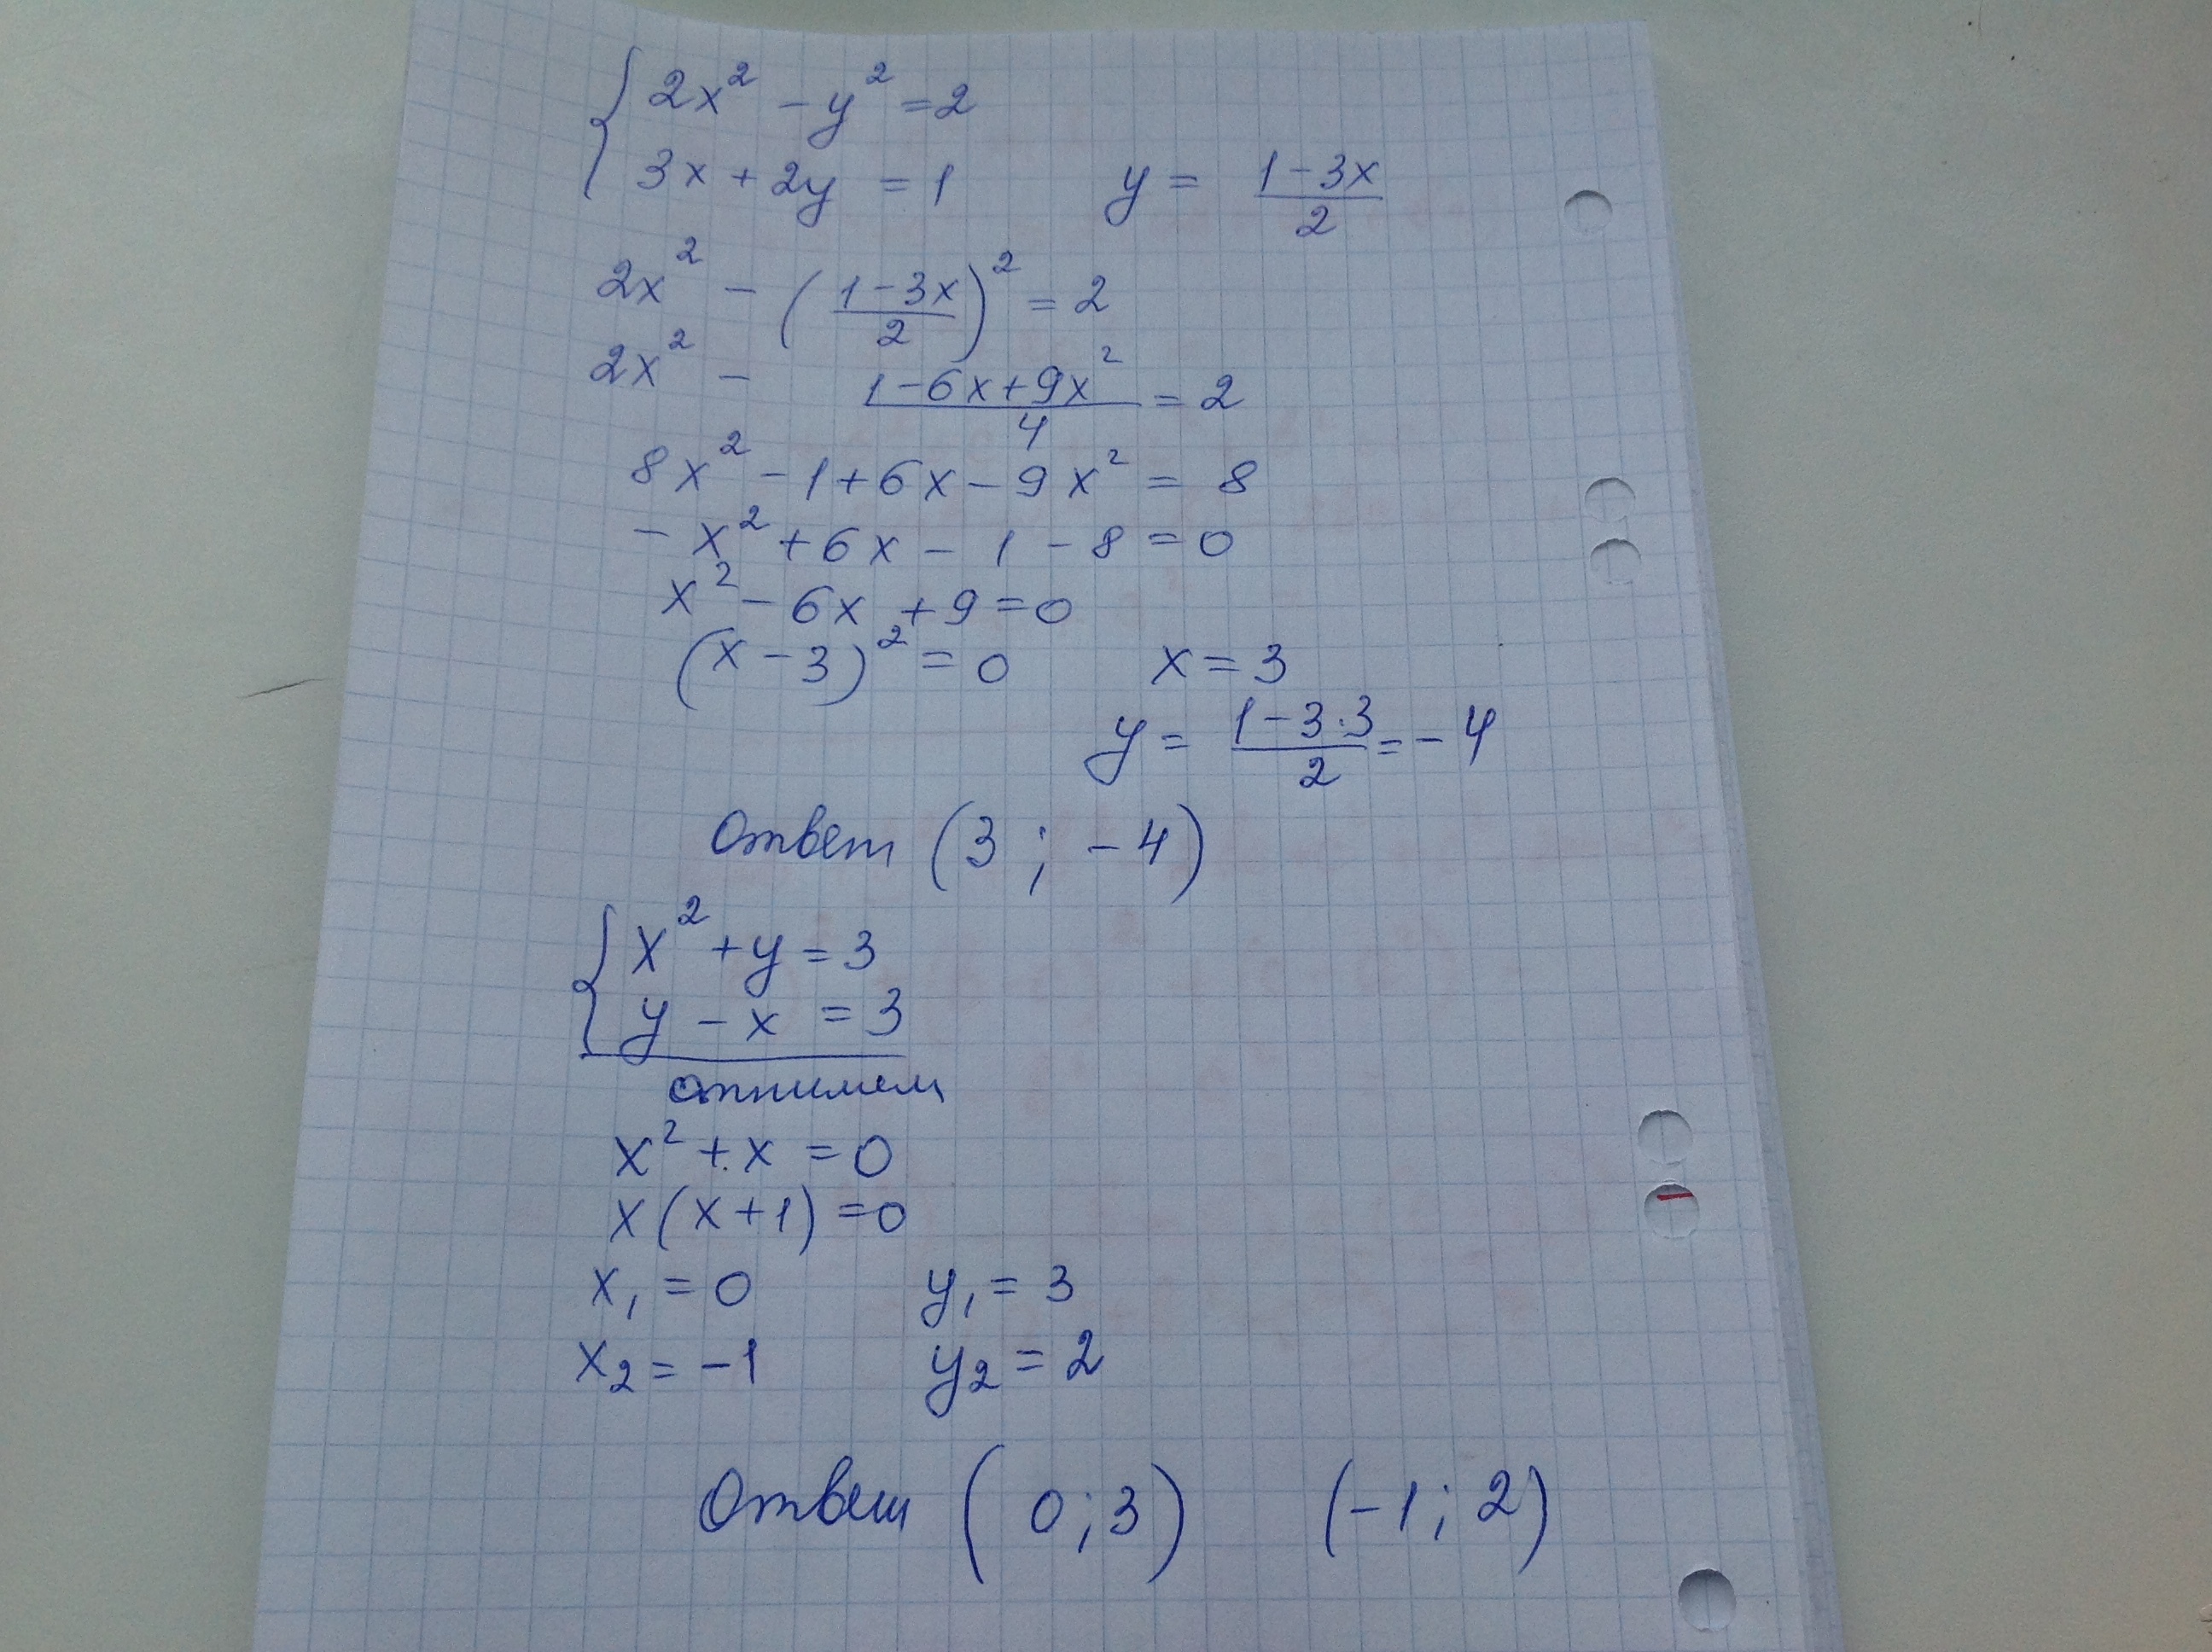 { 2x² - y² = 2
3x + 2y = 1    y = (1 - 3x)/2
2x² - ((1 - 3x)/2)² = 2
2x² - (1 - 6x + 9x²)/4 = 2
8x² - 1 + 6x - 9x² = 8
- x² + 6x - 1 - 8 = 0
x² - 6x + 9 = 0
(x - 3)² = 0    x = 3
y = (1 - 3·3)/2 = - 4
Ответ (3 ; - 4)
{ x² + y = 3
y - x = 3
отнимем
x² + x = 0
x(x + 1) = 0
x₁ = 0    y₁ = 3
x₂ = -1    y₂ = 2
Ответ (0; 3)    (-1; 2)